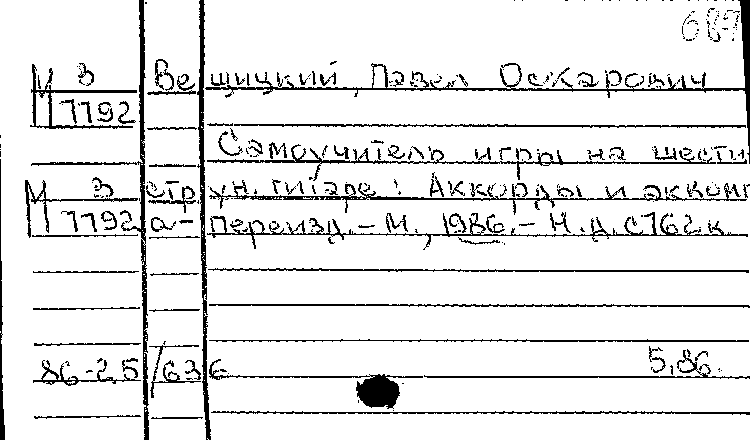 687
М З Вещицкий, Павел Оскарович
7792
Самоучитель игры на шести
М З струн. гитаре: Аккорды и акком
7792 а- Переизд. - М., 1986. - Н.д. с762к
86-2.5/636 5,86.